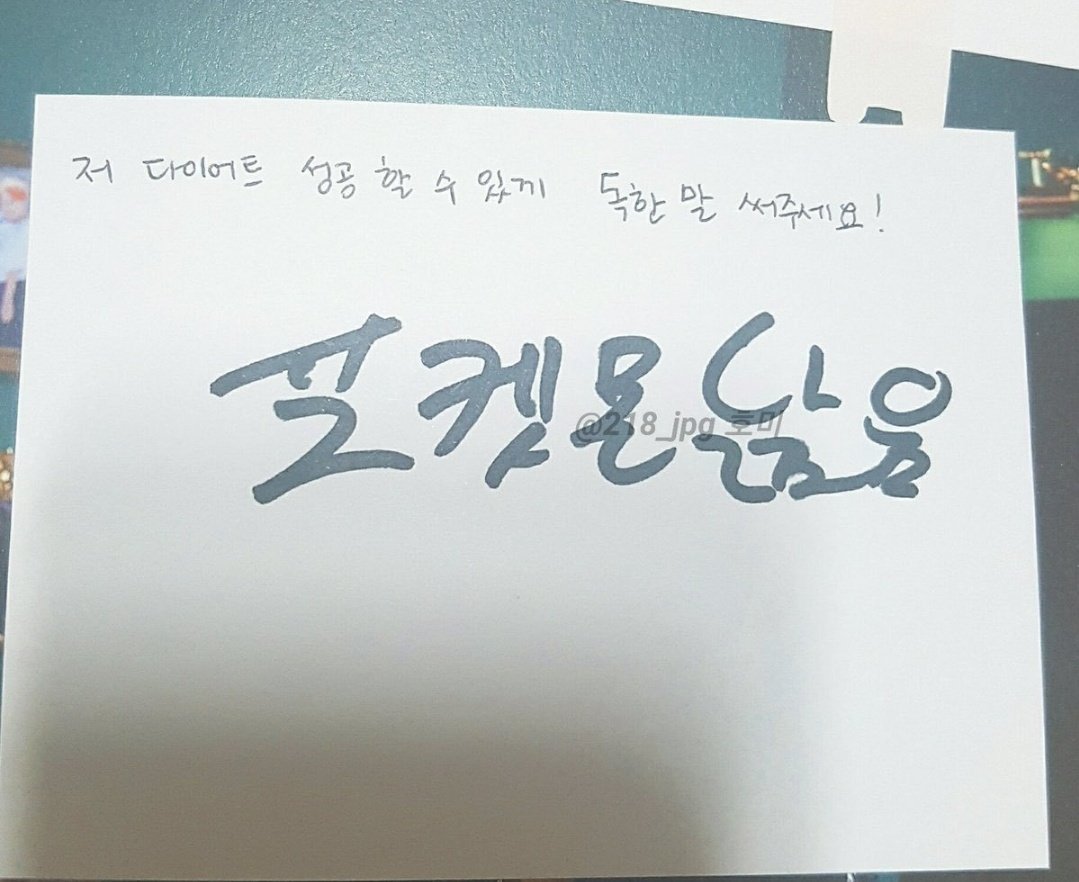 저 다이어트 성공 할 수 있게 독한 말 써주세요!
포켓몬 닮음
@218_jpg 호미